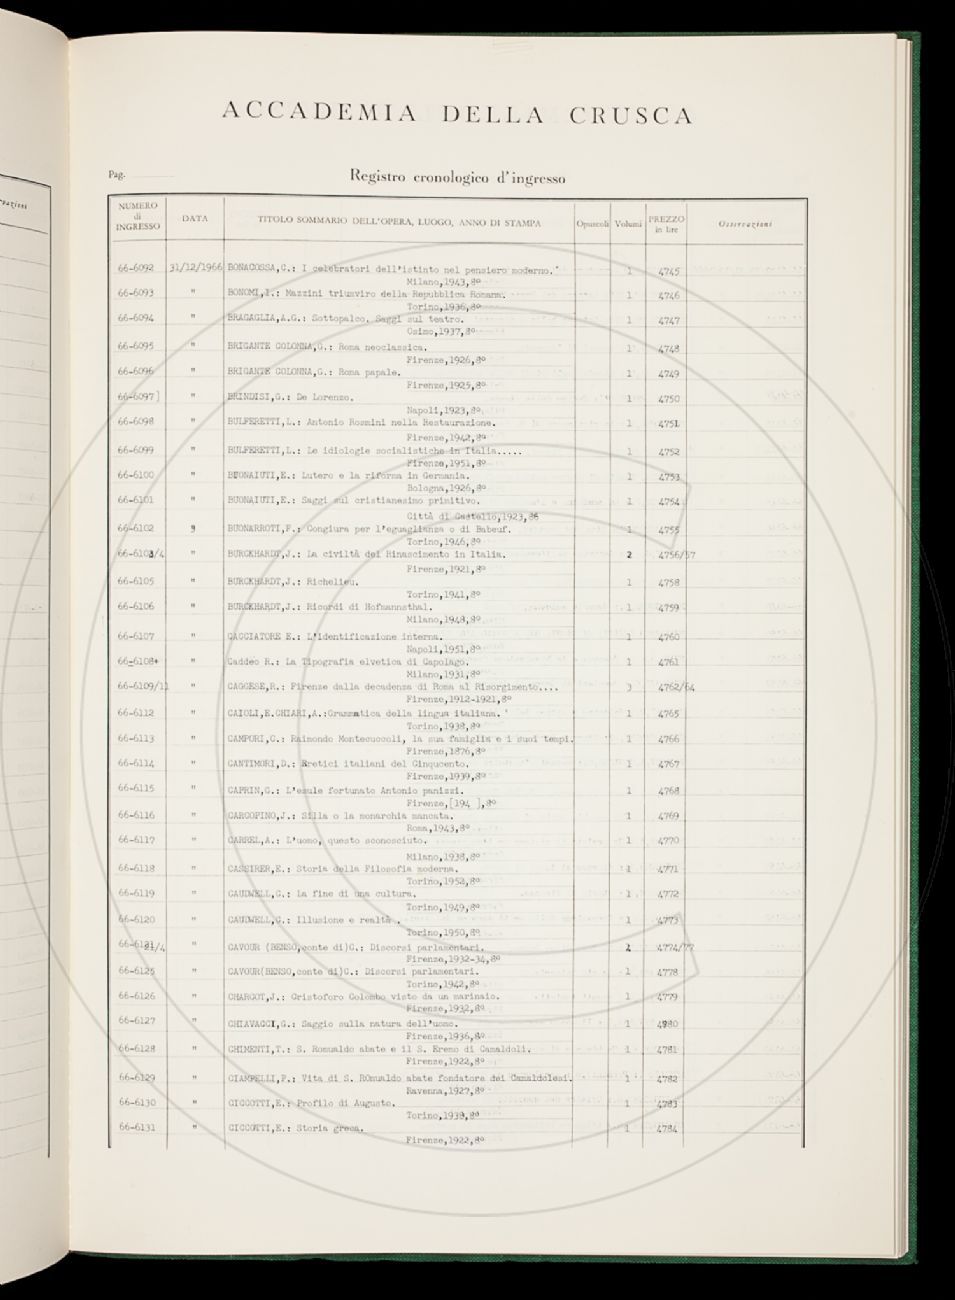 ACCADEMIA DELLA CRUSCA
Pag.
Registro cronologico d'ingresso
NUMERO di INGRESSO DATA TITOLO SOMMARIO DELL'OPERA, LUOGO, ANNO DI STAMPA Opuscoli Volumi PREZZO in lire Osservazioni
66-6092 31/12/1966 BONACOSSA,C.: I celebratori dell'istinto nel pensiero moderno. 1 4745
Milano,1943,8º
66-6093 " BONOMI,I.: Mazzini triumviro della Repubblica Romana. 1 4746
Torino,1936,8º
66-6094 " BRAGAGLIA,A.G.: Sottopalco. Saggi sul teatro. 1 4747
Osimo,1937,8º
66-6095 " BRIGANTE COLONNA,G.: Roma neoclassica. 1 4748
Firenze,1926,8º
66-6096 " BRIGANTE COLONNA,G.: Roma papale. 1 4749
Firenze,1925,8º
66-6097] " BRINDISI,G.: De Lorenzo. 1 4750
Napoli,1923,8º
66-6098 " BULFERETTI,L.: Antonio Rosmini nella Restaurazione. 1 4751
Firenze,1942,8º
66-6099 " BULFERETTI,L.: Le idiologie socialistiche in Italia..... 1 4752
Firenze,1951,8º
66-6100 " BUONAIUTI,E.: Lutero e la riforma in Germania. 1 4753
Bologna,1926,8º
66-6101 " BUONAIUTI,E.: Saggi sul cristianesimo primitivo. 1 4754
Città di Castello,1923,8
66-6102 9 BUONARROTI,F.: Congiura per l'eguaglianza o di Babeuf. 1 4755
Torino,1946,8º
66-6103/4 " BURCKHARDT,J.: La civiltà del Rinascimento in Italia. 2 4756/57
Firenze,1921,8º
66-6105 " BURCKHARDT,J.: Richelieu. 1 4758
Torino,1941,8º
66-6106 " BURCKHARDT,J.: Ricordi di Hofmannsthal. 1 4759
Milano,1948,8º
66-6107 " CACCIATORE E.: L'identificazione interna. 1 4760
Napoli,1951,8º
66-6108+ " Caddeo R.: La Tipografia elvetica di Capolago. 1 4761
Milano,1931,8º
66-6109/11 " CAGGESE,R.: Firenze dalla decadenza di Roma al Risorgimento.... 3 4762/64
Firenze,1912-1921,8º
66-6112 " CAIOLI,E.CHIARI,A.:Grammatica della lingua italiana. 1 4765
Torino,1938,8º
66-6113 " CAMPORI,C.: Raimondo Montecuccoli, la sua famiglia e i suoi tempi. 1 4766
Firenze,1876,8º
66-6114 " CANTIMORI,D.: Eretici italiani del Cinquecento. 1 4767
Firenze,1939,8º
66-6115 " CAPRIN,G.: L'esule fortunato Antonio panizzi. 1 4768
Firenze,[194 ],8º
66-6116 " CARCOPINO,J.: Silla o la monarchia mancata. 1 4769
Roma,1943,8º
66-6117 " CARREL,A.: L'uomo, questo sconosciuto. 1 4770
Milano,1938,8º
66-6118 " CASSIRER,E.: Storia della Filosofia moderna. 1 4771
Torino,1952,8º
66-6119 " CAUDWELL,C.: La fine di una cultura. 1 4772
Torino,1949,8º
66-6120 " CAUDWELL,C.: Illusione e realtà. 1 4773
Torino,1950,8º
66-6121/4 " CAVOUR (BENSO,conte di)C.: Discorsi parlamentari. 4774/77
Firenze,1932-34,8º
66-6125 " CAVOUR(BENSO,conte di)C.: Discorsi parlamentari. 1 4778
Torino,1942,8º
66-6126 " CHARCOT,J.: Cristoforo Colombo visto da un marinaio. 1 4779
Firenze,1932,8º
66-6127 " CHIAVACCI,G.: Saggio sulla natura dell'uomo. 1 4980
Firenze,1936,8º
66-6128 " CHIMENTI,T.: S. Romualdo abate e il S. Eremo di Camaldoli. 1 4781
Firenze,1922,8º
66-6129 " CIAMPELLI,P.: Vita di S. ROmualdo abate fondatore dei Camaldolesi. 1 4782
Ravenna,1927,8º
66-6130 " CICCOTTI,E.: Profilo di Augusto. 1 4783
Torino,1938,8º
66-6131 " CICCOTTI,E.: Storia greca. 1 4784
Firenze,1922,8º